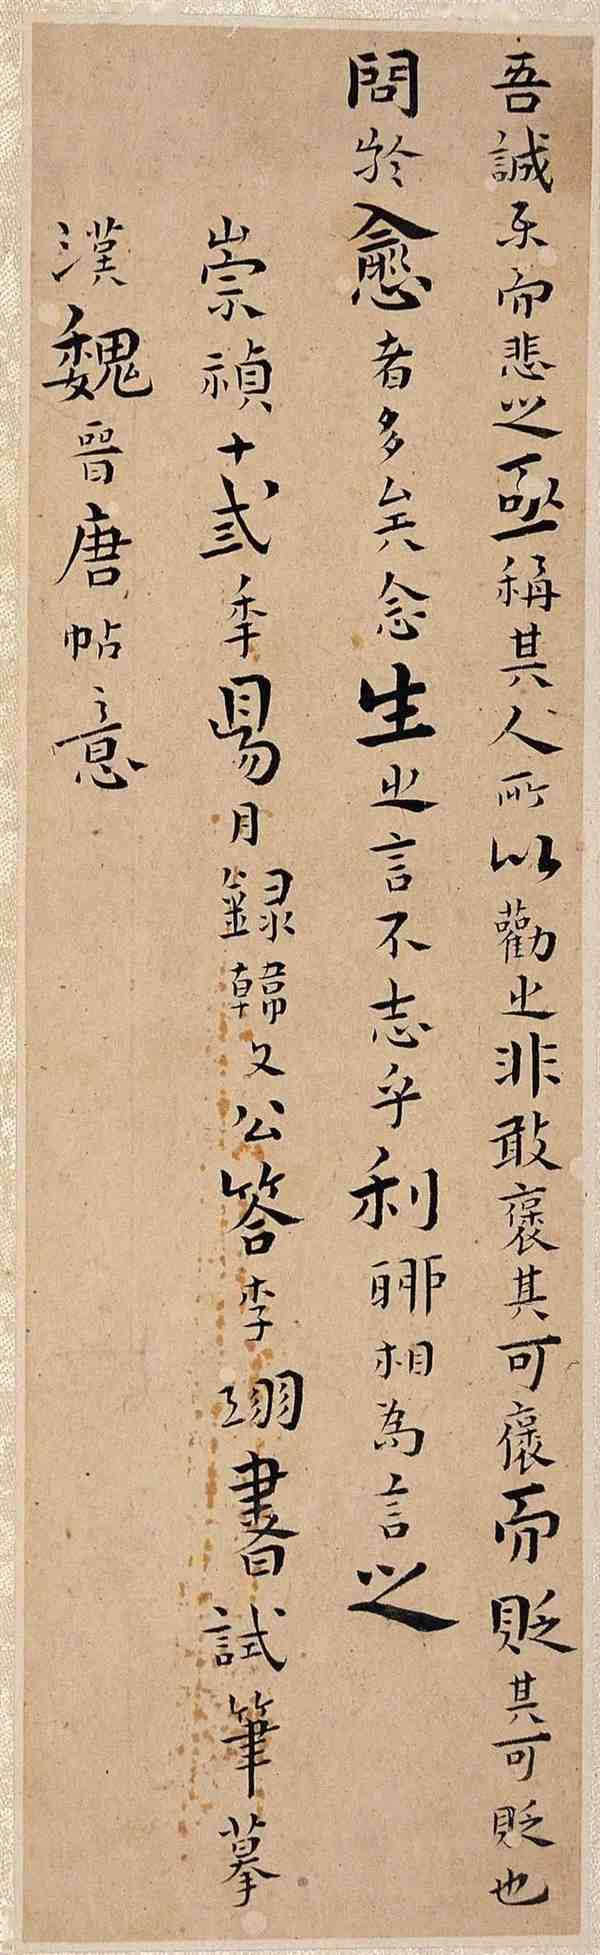 吾誠樂而悲之亟稱其人所以勸之非敢褒其可褒而貶其可貶也
問於愈者多矣念生之言不志乎利聊相為言之
崇禎十弎秊昜月錄韓文公答李翊書試筆摹
漢魏晉唐帖之意